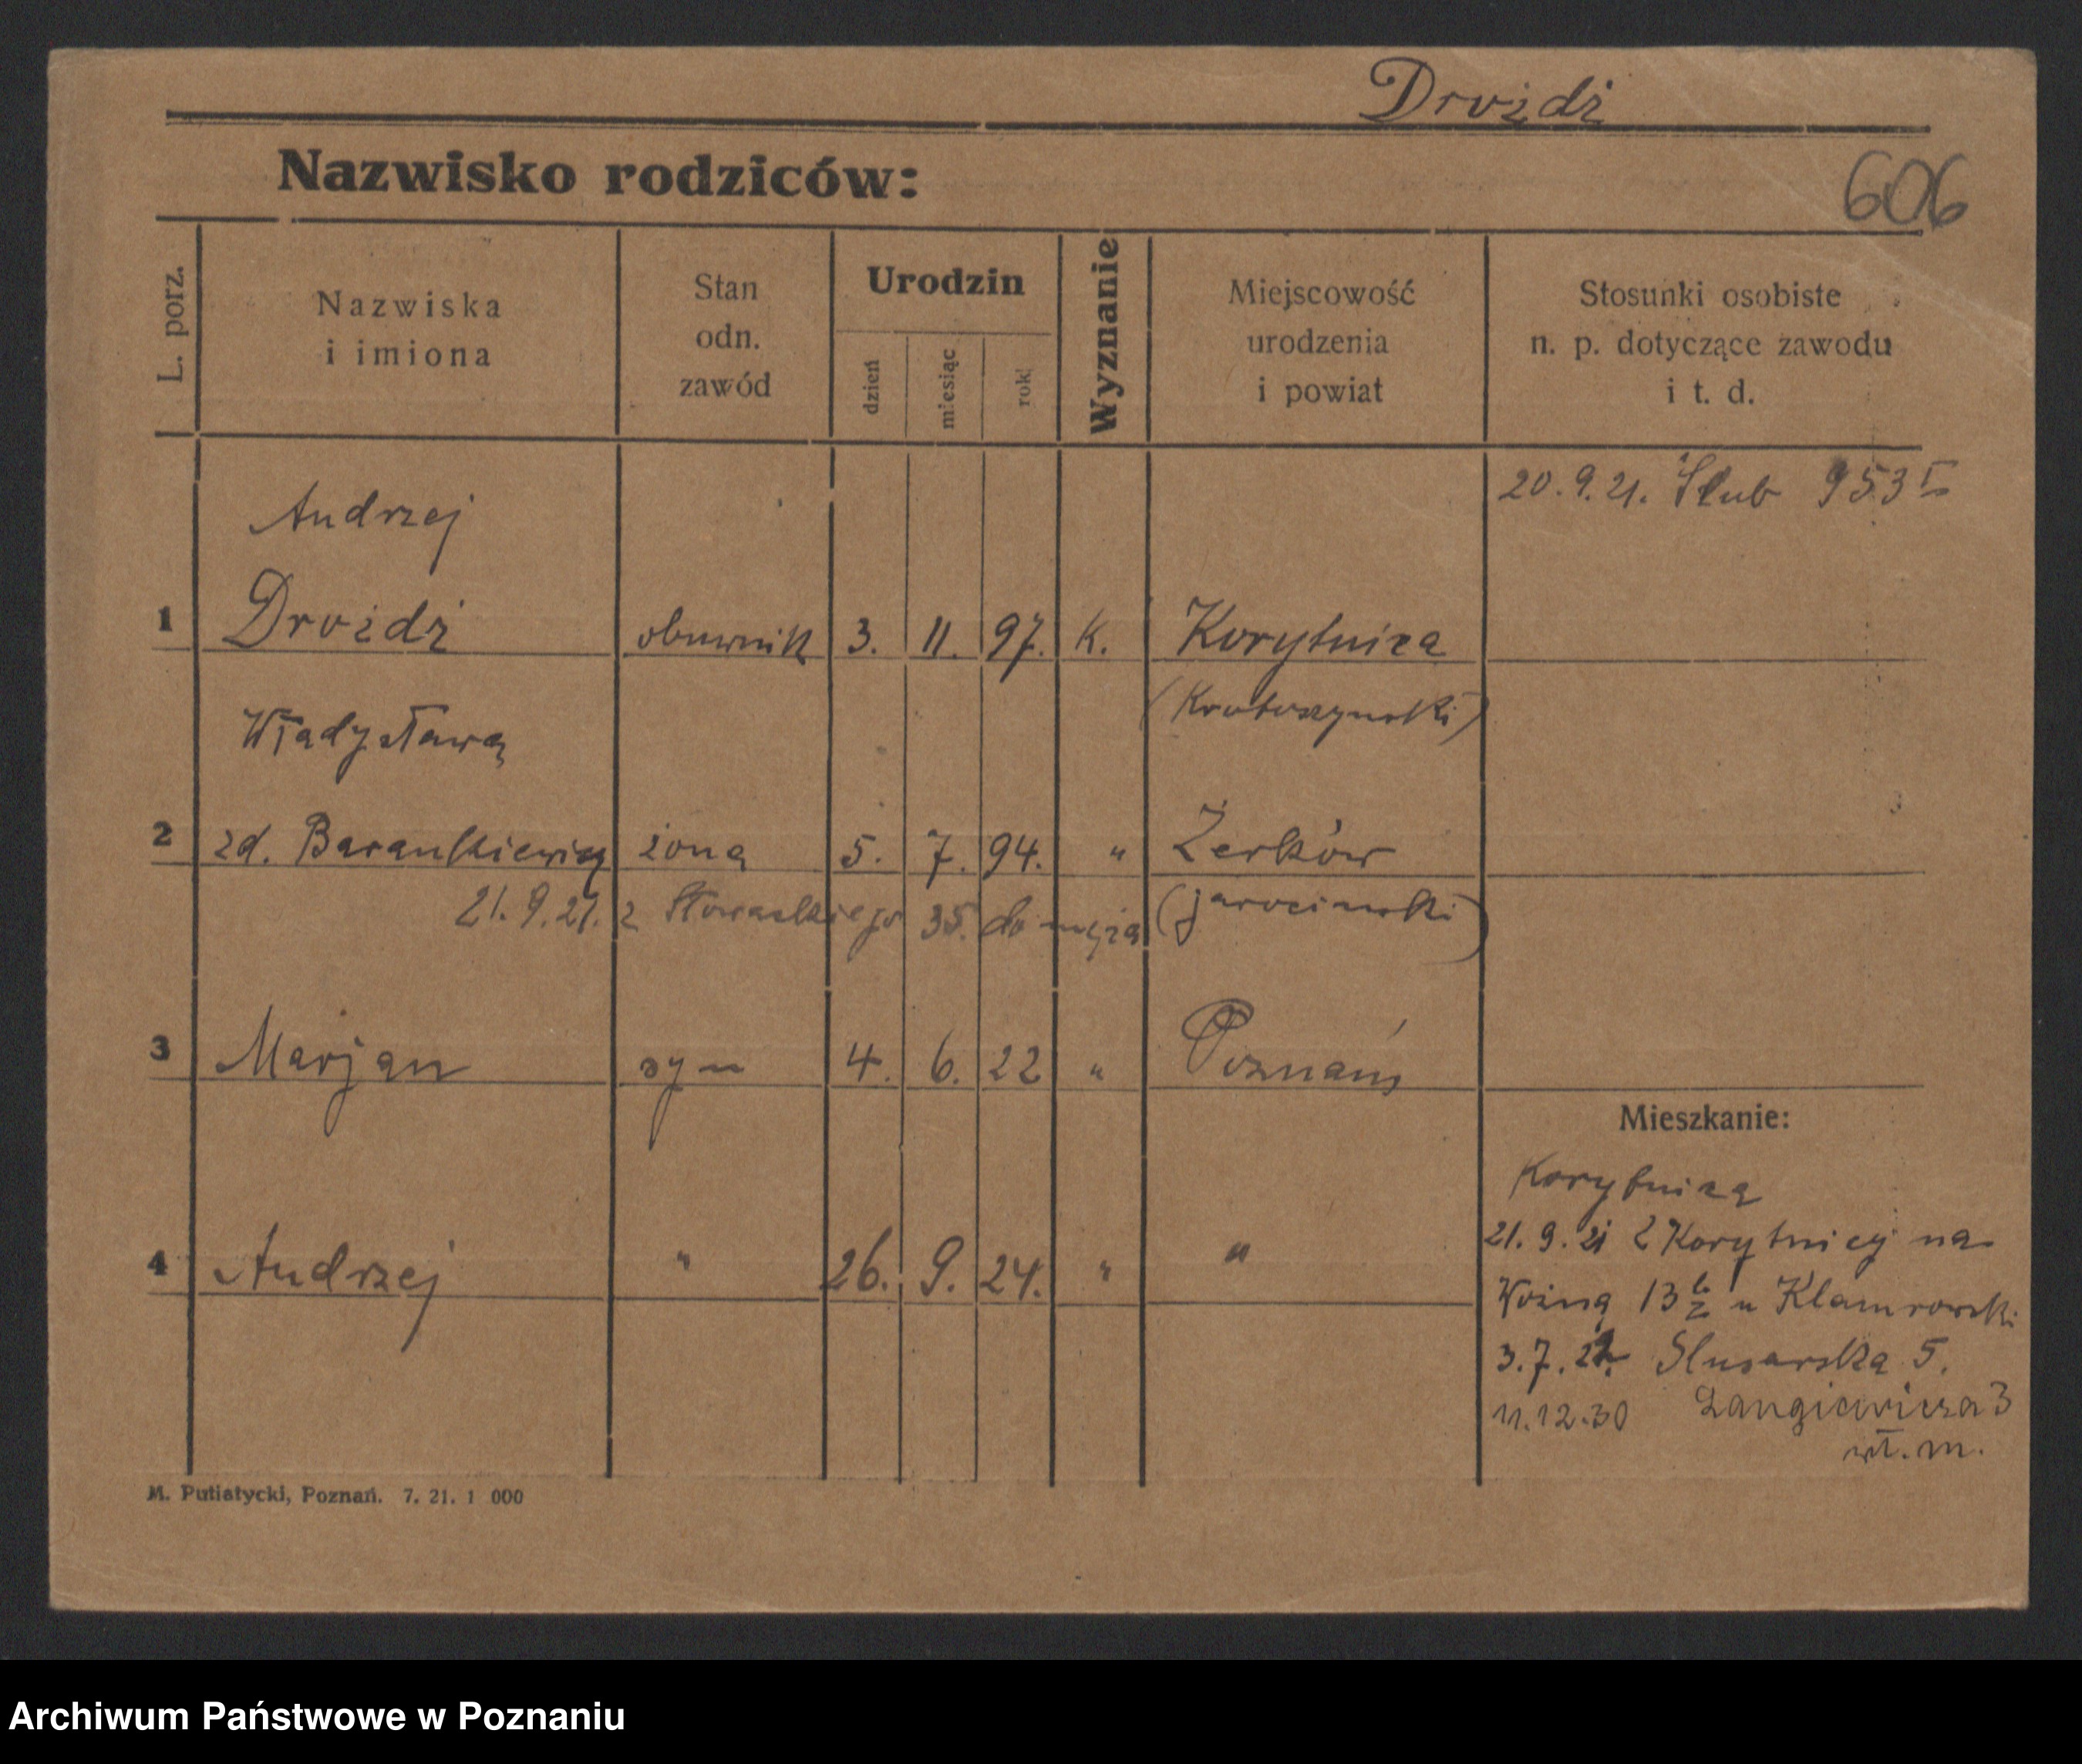 Drożdż
Nazwisko rodziców:
606
L. porz.
Nazwiska
i imiona
Stan
odn.
zawód
Urodzin
dzień
miesiąc
rok
Wyznanie
Miejscowość
urodzenia
i powiat
Stosunki osobiste
n. p. dotyczące zawodu
i t. d.
20. 9. 21. Ślub 953 I
Andrzej
1 Drożdż obuwnik 3. 11. 97. K. Korytnica
(Krotoszynski)
Władysława
2 zd. Barankiewicz żona 5. 7. 94. " Żerków
21. 9. 21. z Słowackiego 35. do męża (jarocinski)
3 Marjan syn 4. 6. 22 " Poznań
Mieszkanie:
Korytnica
4 Andrzej " 26. 9. 24. " "
21. 9. 21 z Korytnicy na
Woźną 13 u Klamrowski
3. 7. Slusarska 5.
11.12.30 Langiewicza 3
wł. m.
M. Putiatycki, Poznań. 7. 21. 1 000
Archiwum Państwowe w Poznaniu